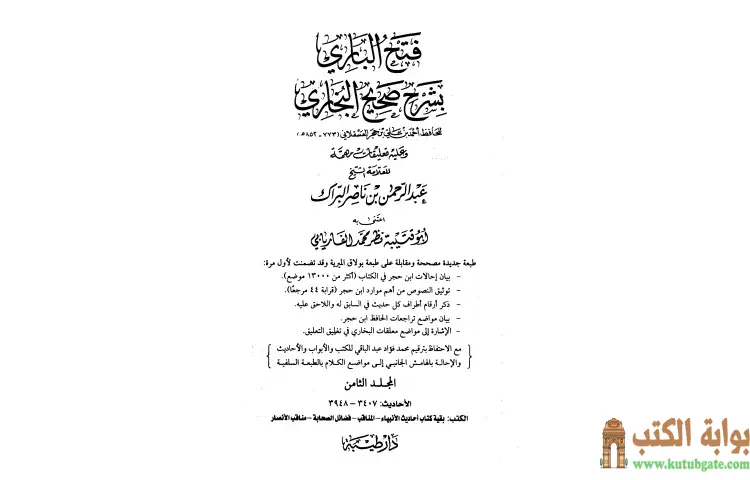 فتح الباري
بشرح صحيح البخاري
للحافظ أحمد بن علي بن حجر العسقلاني (٧٧٣ - ٨٥٢هـ)
وعليه تعليقات مهمة
للعلامة الشيخ
عبد الرحمن بن ناصر البراك
اعتنى به
أبو قتيبة نظر محمد الفاريابي
طبعة جديدة مصححة ومقابلة على طبعة بولاق الميرية وقد تضمنت لأول مرة:
- بيان إحالات ابن حجر في الكتاب (أكثر من ١٣٠٠٠ موضع).
- توثيق النصوص من أهم موارد ابن حجر (قرابة ٤٤ مرجعًا).
- ذكر أرقام أطراف كل حديث في السابق له واللاحق عليه.
- بيان مواضع تراجعات الحافظ ابن حجر.
- الإشارة إلى مواضع معلقات البخاري في تغليق التعليق.
مع الاحتفاظ بترقيم محمد فؤاد عبد الباقي للكتب والأبواب والأحاديث
والإحالة بالهامش الجانبي إلى مواضع الكلام بالطبعة السلفية
المجلد الثامن
الأحاديث: ٣٤٠٧ - ٣٩٤٨
الكتب: بقية كتاب أحاديث الأنبياء - المناقب - فضائل الصحابة - مناقب الأنصار
دار طيبة
بوابة الكتب
www.kutubgate.com